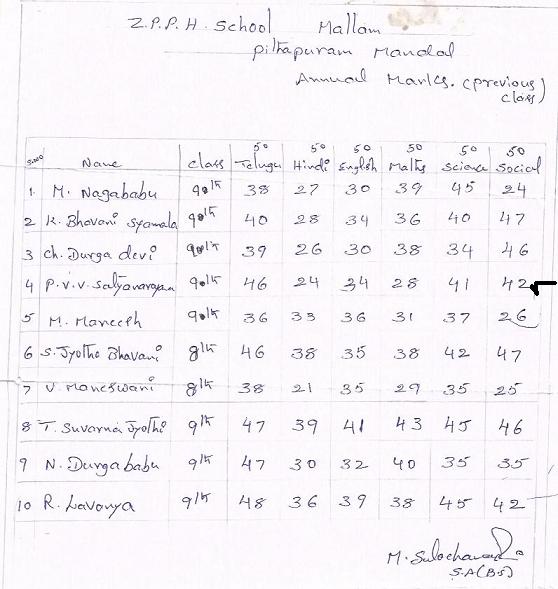 Z.P.P.H. School Mallam
pithapuram Mandal
Annual Marks. (previous class)
50 50 50 50 50 50
S.NO Name class Telugu Hindi English Maths Science Social
1. M. Nagababu 9th 38 27 30 39 45 24
2 K. Bhavani Syamala 9th 40 28 34 36 40 47
3 Ch. Durga devi 9th 39 26 30 38 34 46
4 P.V.V. Satyanarayana 9th 46 24 34 28 41 42
5 M. Maneesh 9th 36 33 36 31 37 26
6 S. Jyothi Bhavani 8th 46 38 35 38 42 47
7 V. Maneswani 8th 38 21 35 29 35 25
8 T. Suvarna Jyothi 9th 47 39 41 43 45 46
9 N. Durgababu 9th 47 30 32 40 35 35
10 R. Lavanya 9th 48 36 39 38 45 42
M. Sulochana
S.A (B.S)